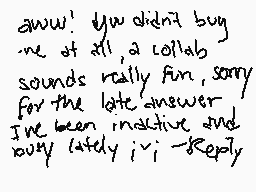 aww! you didn't bug
me at all, a collab
sounds really fun, sorry
for the late answer
I've been inactive and
busy lately ;v; -Reply